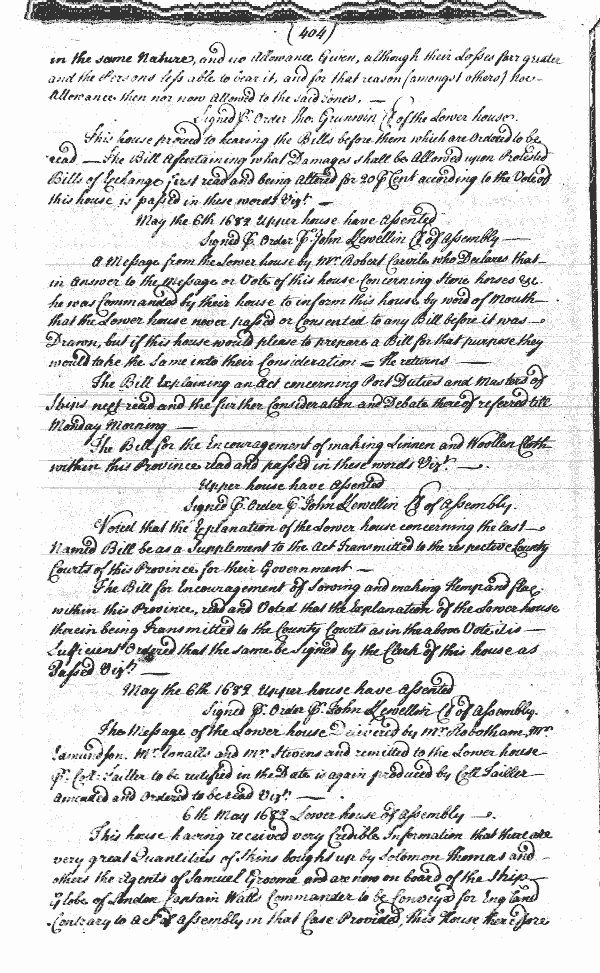 (404)
in the same Nature, and no Allowance Given, although their Losses farr greater
and the Persons less able to bear it, and for that reason (amongst others) noe
Allowance then nor now Allowed to the said Jones. —
Signed P. Order Tho. Grunwin Cl of the Lower house.
This house proceed to hearing the Bills before them which are Ordered to be
read — The Bill Ascertaining what Damages shall be Allowed upon Protested
Bills of Exchange, first read and being Altered for 20 P Cent according to the Vote of
this house is passed in these words Vizt. —
May the 6th 1682 Upper house have Assented
Signed P. Order P. John Llewellin Cl of Assembly —
A Message from the Lower house by Mr. Robert Carvile who Declares that
in Answer to the Message or Vote of this house Concerning Stone horses &c.
he was Commanded by their house to inform this house by word of Mouth
that the Lower house never passed or Consented to any Bill before it was
Drawn, but if this house would please to prepare a Bill for that purpose they
would take the Same into their Consideration — He returns —
The Bill Explaining an Act concerning Port Duties and Masters of
Ships next read and the further Consideration and Debate thereof referred till
Monday Morning —
The Bill for the Encouragement of making Linnen and Woollen Cloth
within this Province read and passed in these words Vizt. —.
Upper house have Assented
Signed P. Order P. John Llewellin Cl of Assembly.
Voted that the Explanation of the Lower house concerning the last
Named Bill be as a Supplement to the Act Transmitted to the respective County
Courts of this Province for their Government —
The Bill for Encouragement of Sowing and making Hemp and Flax
within this Province, read and Voted that the Explanation of the Lower house
therein being Transmitted to the County Courts as in the above Vote it is
Sufficient Ordered that the same be Signed by the Clark of this house as
Passed Vizt. —
May the 6th 1682 Upper house have Assented
Signed P. Order P. John Llewellin Cl of Assembly.
The Message of the Lower house Delivered by Mr. Robotham, Mr.
Edmundson, Mr. Ennalls and Mr. Stevens and remitted to the Lower house
P. Coll: Tailler to be rectified in the Date is again produced by Coll Tailler
Amended and Ordered to be read Vizt. —.
6th May 1682 Lower house of Assembly —.
This house having received very Credible Information that there are
very great Quantities of Skins bought up by Solomon Thomas and
others the Agents of Samuel Groome and are now on board of the Ship
Globe of London Captain Watts Commander to be Conveyed for England
Contrary to Act of Assembly in that Case Provided, this House therefore